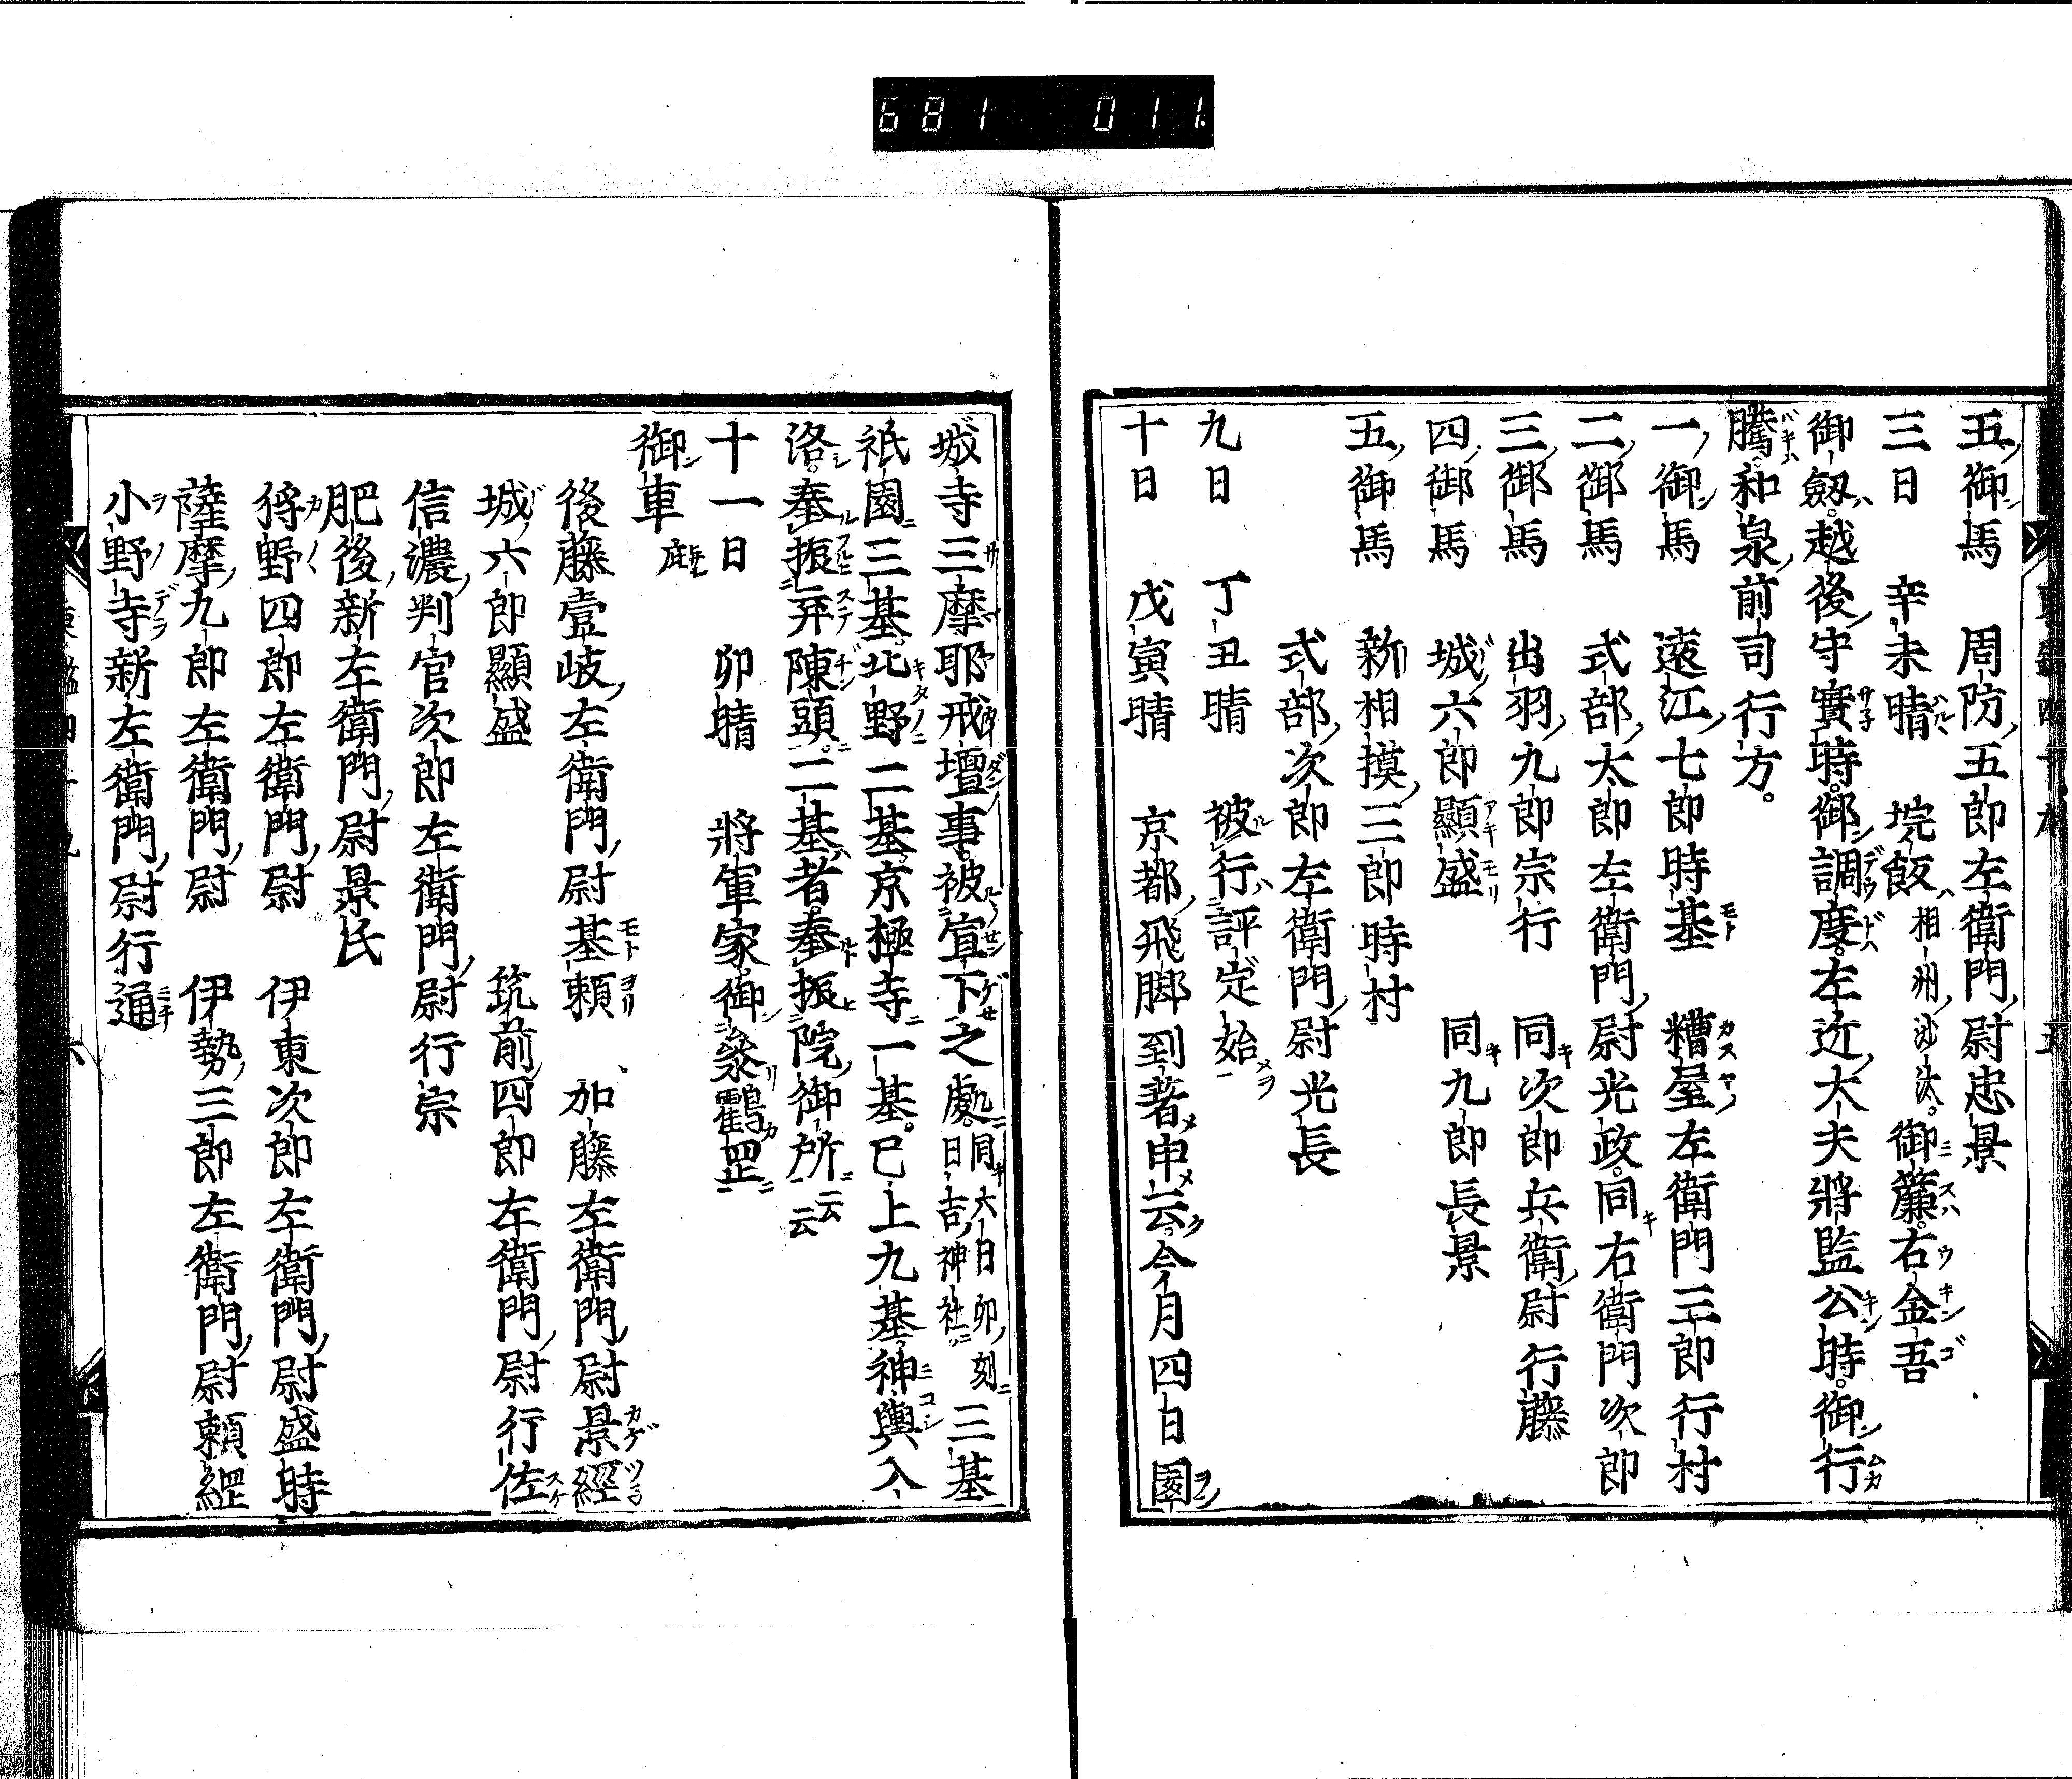 681 011
五御馬 周防五郎左衛門尉忠景
三日 辛未晴 垸飯相州沙汰。御簾。右金吾
御劔。越後守實時。御調度。左近大夫將監公時。御行
騰。和泉前司行方。
一御馬 遠江七郎時基 糟屋左衛門三郎行村
二御馬 式部太郎左衛門尉光政。同右衛門次郎
三御馬 出羽九郎宗行 同次郎兵衛尉行藤
四御馬 城六郎顯盛 同九郎長景
五御馬 新相摸三郎時村
式部次郎左衛門尉光長
九日 丁丑晴 被行評定始
十日 戊寅晴 京都飛脚到著申云。今月四日園
城寺三摩耶戒壇事。被宣下之處。同六日卯刻日吉神社。三基
祇園三基。北野二基。京極寺一基。已上九基。神輿入
洛。奉振弃陳頭。二基者。奉振院御所云云
十一日 卯晴 將軍家。御參鶴罡
御車庇
後藤壹岐左衛門尉基頼 加藤左衛門尉景經
城六郎顯盛 筑前四郎左衛門尉行佐
信濃判官次郎左衛門尉行宗
肥後新左衛門尉景氏
狩野四郎左衛門尉 伊東次郎左衛門尉盛時
薩摩九郎左衛門尉 伊勢三郎左衛門尉頼綱
小野寺新左衛門尉行通